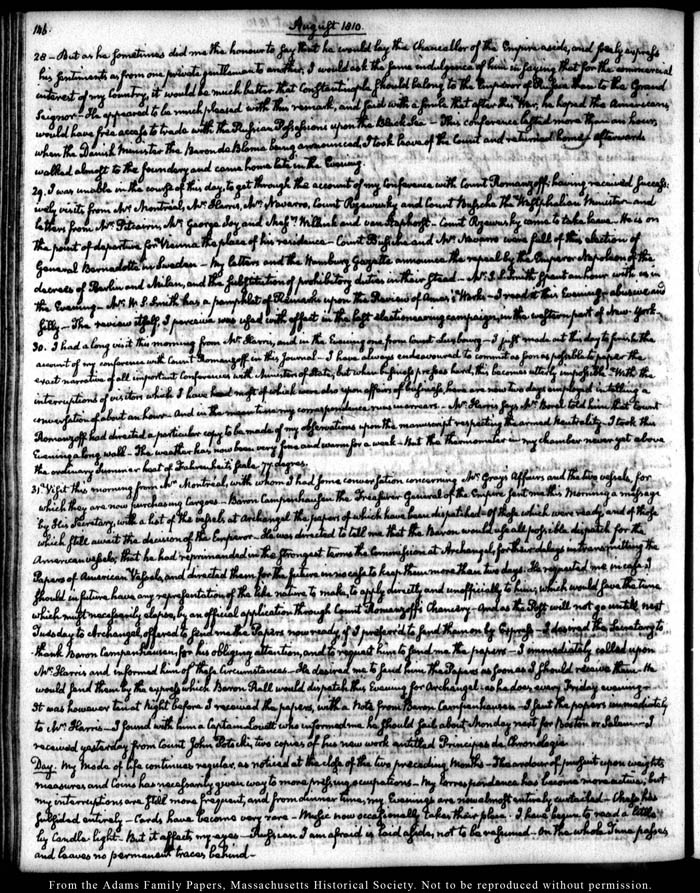 146.
August 1810.
28 – But as he sometimes did me the honour to say that he would lay the Chancellor of the Empire aside, and freely express
his sentiments as from one private gentleman to another, I would ask the same indulgence of him in saying that for the commercial
interest of my Country, it would be much better that Constantinople should belong to the Emperor of Russia than to the Grand
Seignor – He appeared to be much pleased with this remark, and said with a smile that after this War, he hoped the Americans
would have free access to trade with the Russian Possessions upon the Black Sea – This conference lasted more than an hour,
when the Danish Minister the Baron de Blome being announced, I took leave of the Count and returned home – afterwards
walked almost to the foundery and came home late in the Evening.
29. I was unable in the course of this day, to get through the account of my Conference with Count Romanzoff; having received success:
ively visits from Mr. Montreal, Mr. Harris, Mr. Navarro, Count Rzewusky and Count Bussche the Westphalian Minister – and
letters from Mr. Pitcairn, Mr. George Joy and Messrs. Willink and van Staphorst – Count Rzewusky came to take leave – He is on
the point of departure for Vienna the place of his residence – Count Bussche and Mr. Navarro were full of this election of
General Bernadotte in Sweden – My letters and the Hamburg Gazette announce the repeal by the Emperor Napoleon of the
decrees of Berlin and Milan, and the substitution of prohibitory duties in their stead – Mr. S. Smith spent an hour with us in
the Evening – Mr. W. S. Smith has a pamphlet of Remarks upon the Review of Ames's Works – I read it this Evening – abusive and
silly – The review itself, I perceive was used with effect in the last electioneering campaign, in the western part of New-York.
30. I had a long visit this morning from Mr. Harris, and in the Evening one from Count Luxbourg – I just made out this day to finish the
account of my conference with Count Romanzoff in this Journal – I have always endeavoured to commit as soon as possible to paper the
exact narrative of all important Conferences with Ministers of State, but when business presses hard, this becomes utterly impossible – With the
interruptions of visitors which I have had most of which were also upon affairs of business, here are now two days employed in telling a
conversation of about an hour – And in the mean time my correspondence runs in arrears – Mr. Harris says Mr. Borel told him that Count
Romanzoff had directed a particular copy to be made of my observations upon the manuscript respecting the armed Neutrality – I took this
Evening a long walk – The weather has now been very fine and warm for a week – But the thermometer in my chamber never yet above
the ordinary Summer heat of Fahrenheit's scale 77 degrees.
31. Visit this morning from Mr. Montreal, with whom I had some conversation concerning Mr. Gray's Affairs and the two vessels, for
which they are now purchasing Cargoes – Baron Campenhausen the Treasurer General of the Empire sent me this Morning a message
by His Secretary, with a list of the vessels at Archangel the papers of which have been dispatched – of those which were ready, and of those
which still await the decision of the Emperor – He was directed to tell me that the Baron would use all possible dispatch for the
American vessels; that he had reprimanded in the strongest terms the Commission at Archangel, for their delays in transmitting the
Papers of American Vessels, and directed them for the future in no case to keep them more than two days. He requested me in case I
should in future have any representation of the like nature to make, to apply directly and unofficially to him, which would save the time
which must necessarily elapse, by an official application through Count Romanzoff's Chancery – And as the Post will not go until next
Tuesday to Archangel, offered to send me the Papers now ready, if I preferr'd to send them on by Express – I desired the Secretary to
thank Baron Campenhausen, for his obliging attention, and to request him to send me the papers – I immediately called upon
Mr. Harris and informed him of these circumstances – He desired me to send him the Papers as soon as I should receive them – He
would send them by the express which Baron Rall would dispatch this Evening for Archangel – as he does every Friday evening –
It was however ten at Night before I received the papers, with a Note from Baron Campenhausen – I sent the papers immediately
to Mr. Harris – I found with him a Captain Lovett who informed me he should sail about Monday next for Boston or Salem – I
received yesterday from Count John Potocki, two copies of his new work entitled Principes de Chronologie
Day. My Mode of life continues regular, as noticed at the close of the two preceding Months – The ardour of pursuit upon weights,
measures, and Coins has necessarily given way to more pressing occupations – My Correspondence has become more active; but
my interruptions are still more frequent, and from dinner time, my Evenings are now almost entirely curtailed – Chess has
subsided entirely – Cards have become very rare – Music now occasionally takes their place – I have begun to read a little
by Candle-light – But it affects my eyes – Russian I am afraid is laid aside, not to be resumed – On the whole Time passes,
and leaves no permanent traces behind –
From the Adams Family Papers, Massachusetts Historical Society. Not to be reproduced without permission.